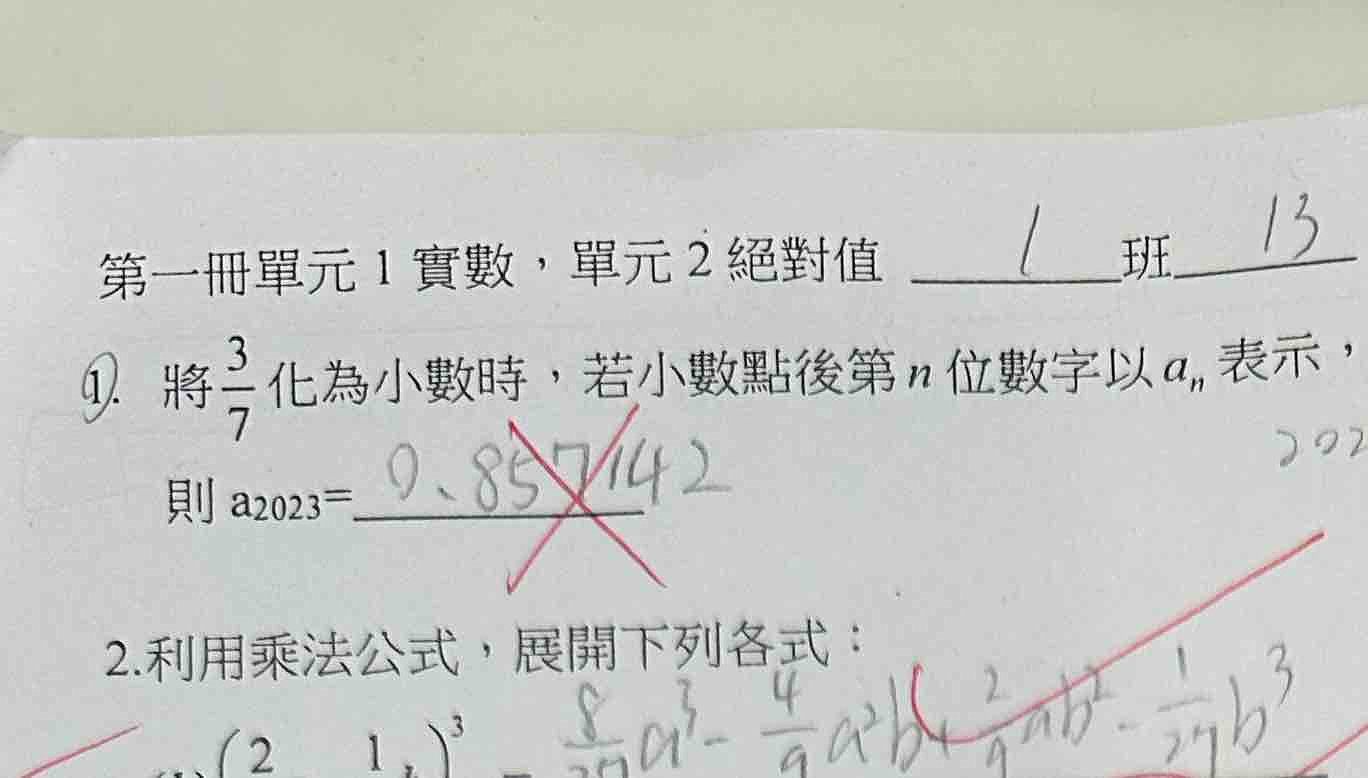 第一冊單元 1 實數，單元 2 絕對值 1 班 13
1. 將 3/7 化為小數時，若小數點後第 n 位數字以 aₙ 表示，
202
則 a2023= 0.857142
2.利用乘法公式，展開下列各式：
8/27 a³ - 4/9 a²b + 2/9 ab² - 1/27 b³
(2 1 )³